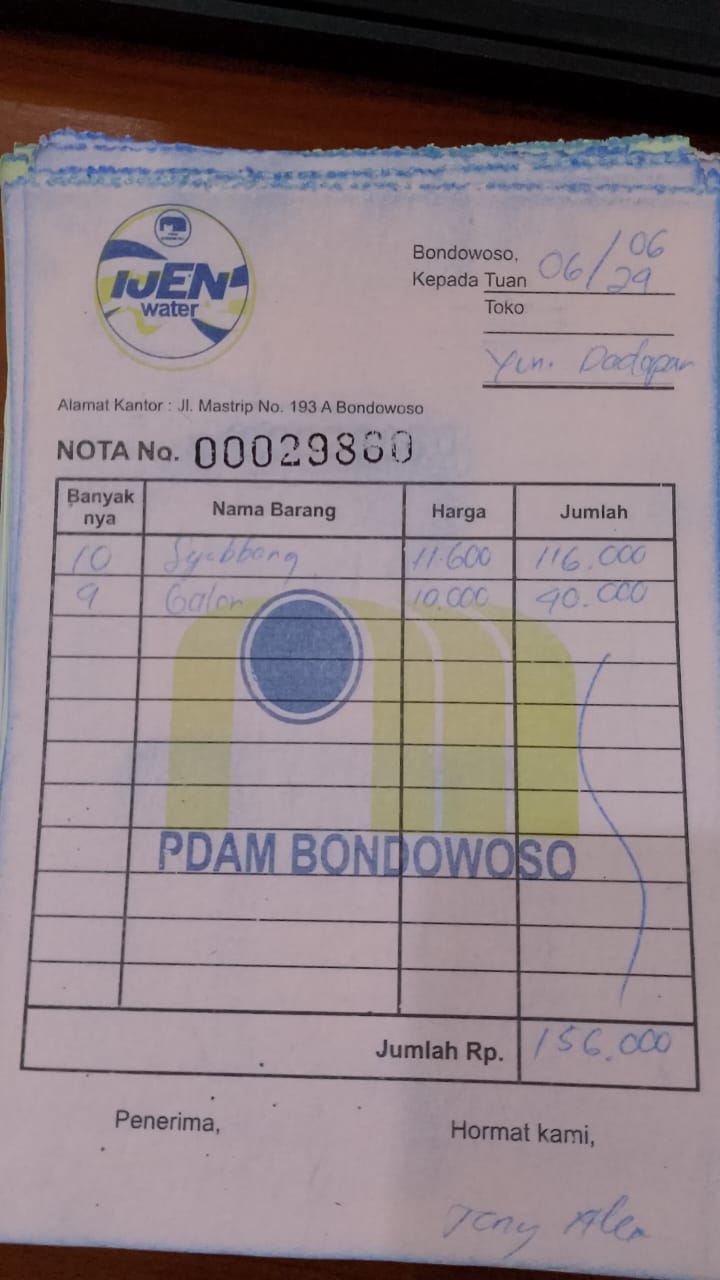 IJEN
water
Bondowoso, 06/06
Kepada Tuan 29
Toko
Yun. Dadapan
Alamat Kantor : Jl. Mastrip No. 193 A Bondowoso
NOTA No. 00029860
Banyak nya Nama Barang Harga Jumlah
10 11.600 116.000
Galon 10.000 40.000
PDAM BONDOWOSO
Jumlah Rp. 156.000
Penerima, Hormat kami,
Tony